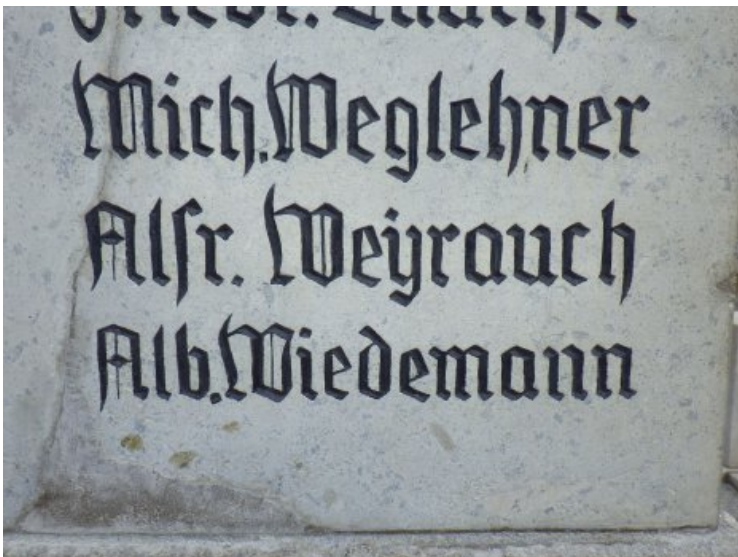 Friedr.
Mich. Weglehner
Alfr. Weyrauch
Alb. Wiedemann